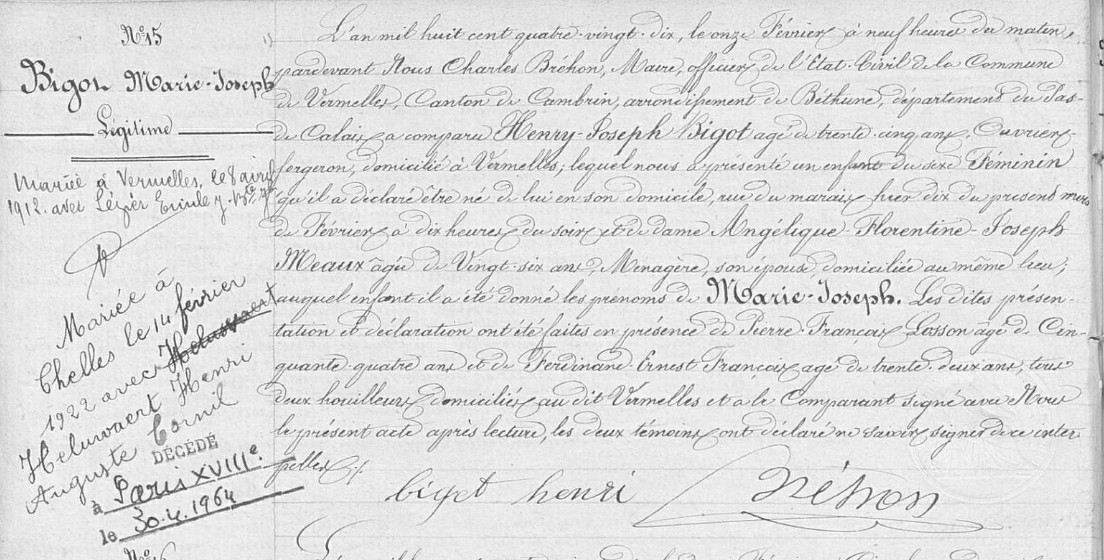 N° 15
Bigot Marie-Joseph
Légitime
Mariée à Vermelles, le 8 avril
1912. avec Lézier Emile
Mariée à
Chelles le 14 février
1922 avec
Heluwaert Henri
Auguste Cornil
DÉCÉDÉ
à Paris XVIIIe.
le 30.4.1964
L'an mil huit cent quatre-vingt-dix, le onze Février à neuf heures du matin,
pardevant Nous Charles Bréhon, Maire, officier de l'Etat-Civil de la Commune
de Vermelles, Canton de Cambrin, arrondissement de Béthune, département du Pas-
de Calais, a comparu Henry-Joseph Bigot agé de trente-cinq ans, Ouvrier-
forgeron, domicilié à Vermelles; lequel nous a présenté un enfant du sexe Féminin
qu'il a déclaré être né de lui en son domicile, rue du marais hier dix du présent mois
de Février à dix heures du soir et de dame Angélique-Florentine-Joseph
Meaux âgée de Vingt-six ans, Ménagère, son épouse domiciliée au même lieu;
auquel enfant il a été donné les prénoms de Marie-Joseph. Les dites présen-
tation et déclaration ont été faites en présence de Pierre-François Losson agé de Cin-
quante-quatre ans et de Ferdinand-Ernest François agé de trente-deux ans, tous
deux houilleurs domiciliés au dit Vermelles et a le Comparant signé avec Nous
le présent acte après lecture, les deux témoins ont déclaré ne savoir signer de ce inter
pellés ./.
bigot henri Bréhon